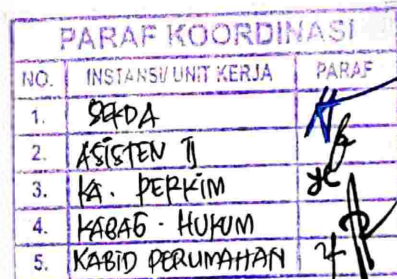 PARAF KOORDINASI
NO. INSTANSI/UNIT KERJA PARAF
1. SEKDA
2. ASISTEN II
3. KA. PERKIM
4. KABAG. HUKUM
5. KABID PERUMAHAN